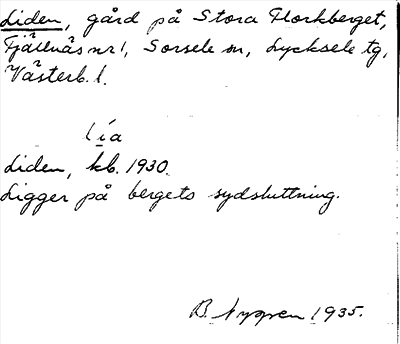 Liden, gård på Stora Storkberget,
Fjällnäs nr 1, Sorsele sn, Lycksele tg,
Västerb. l.
lía
Liden, kb. 1930.
Ligger på bergets sydsluttning.
B. Nygren 1935.